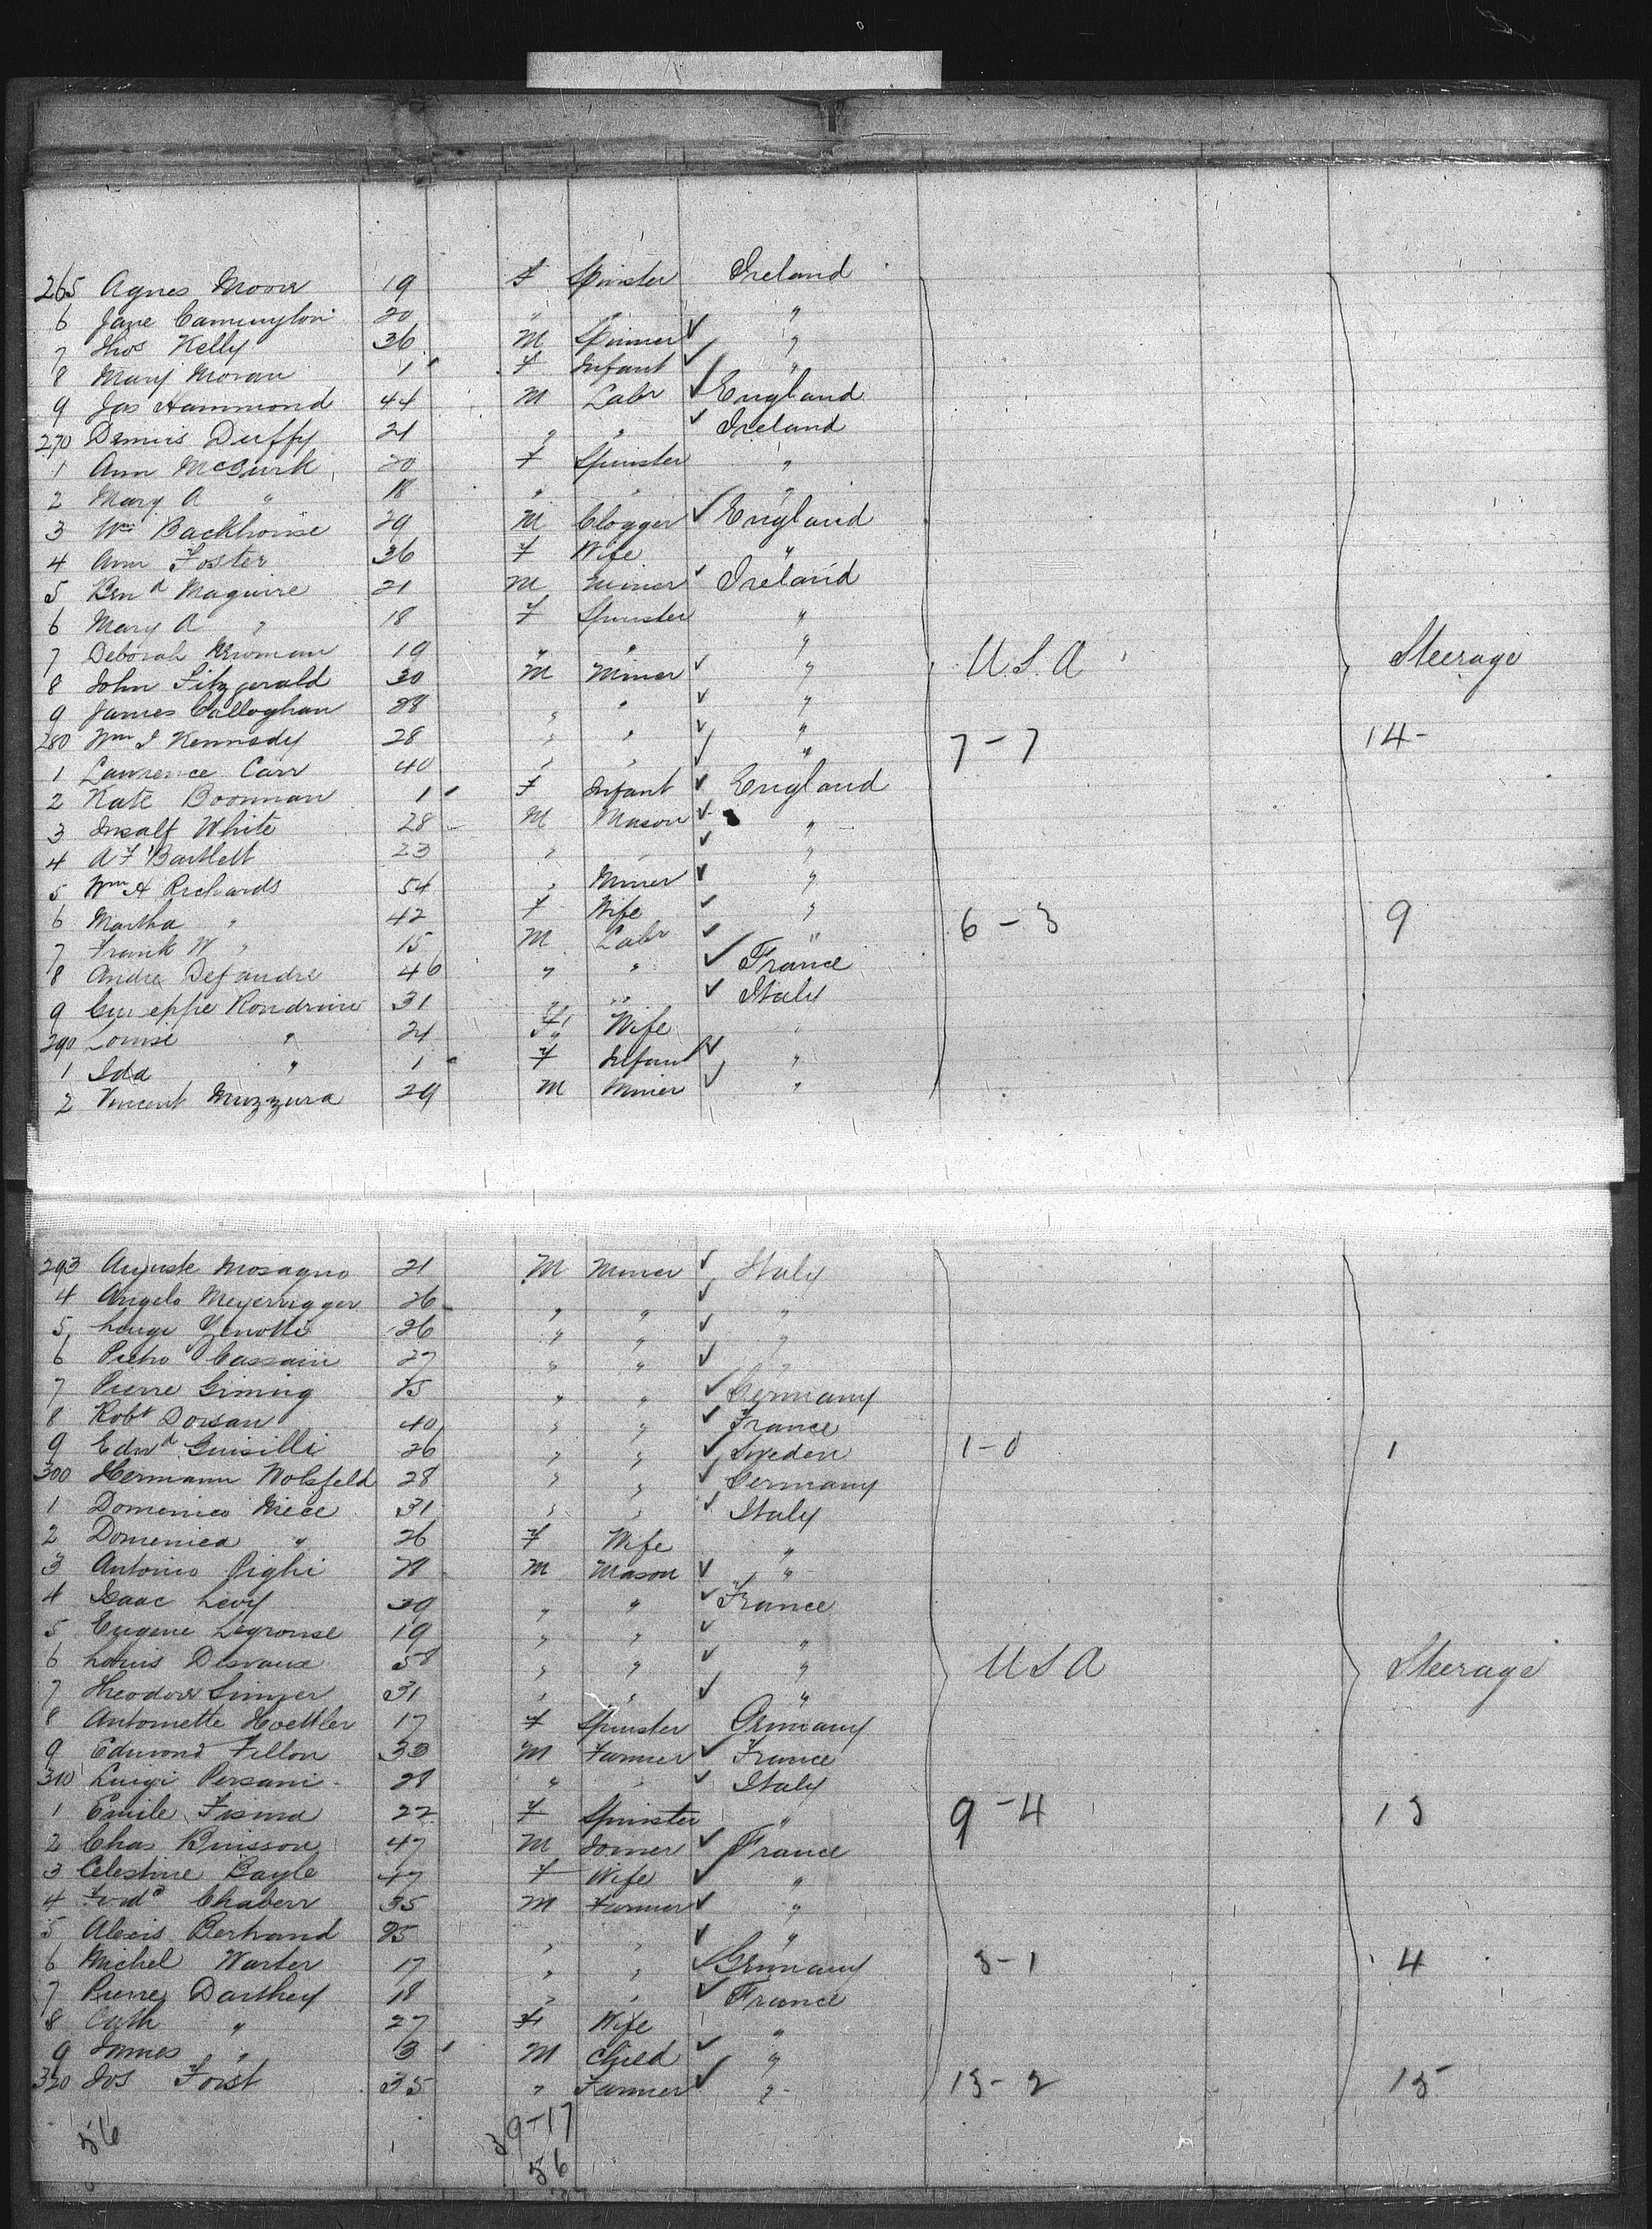 265 Agnes Moore 19 F Spinster Ireland
6 Jane 20 " " "
7 Thos Kelly 36 M Spinner ✓ "
8 Mary Moran 1 F Infant ✓ "
9 Jas Hammond 44 M Labr ✓ England
270 Dennis Duffy 21 " " ✓ Ireland
1 Ann McGurk 20 F Spinster "
2 Mary A " 18 " " "
3 Wm Backhouse 29 M Clogger ✓ England
4 Ann Foster 36 F Wife "
5 Bernd Maguire 21 M Miner ✓ Ireland
6 Mary A " 18 F Spinster "
7 Deborah Newman 19 " " "
8 John Fitzgerald 30 M Miner ✓ " U.S.A Steerage
9 James Calloghan 28 " " ✓ "
280 Wm J Kennedy 28 " " ✓ " 7-7 14-
1 Lawrence Carr 40 " " ✓ "
2 Kate Boonman 1 F Infant ✓ England
3 White 28 M Mason ✓ "
4 A F Bartlett 23 " " ✓ "
5 Wm A Richards 54 " Miner ✓ "
6 Martha " 42 F Wife ✓ " 6-3 9
7 Frank W " 15 M Labr ✓ "
8 Andre Defandre 46 " " ✓ France
9 Guiseppe Rondrini 31 " " ✓ Italy
290 Louise " 24 F Wife "
1 Ida " 1 F Infant ✓ "
2 Vincent Muzzura 29 M Miner ✓ "
293 Auguste Mosagno 21 M Miner ✓ Italy
4 Angelo 26 " " ✓ "
5 Luigi Zenotti 26 " " ✓ "
6 Pietro Cassain 27 " " ✓ "
7 Pierre Giming 25 " " ✓ Germany
8 Robt Dorsan 40 " " ✓ France
9 Edwd Guisilli 26 " " ✓ Sweden 1-0 1
300 Hermann Wolsfeld 28 " " ✓ Germany
1 Domenico Miece 31 " " ✓ Italy
2 Domenica " 26 F Wife "
3 Antonio Righi 28 M Mason ✓ "
4 Isaac Levy 39 " " ✓ France
5 Eugene Legronse 19 " " ✓ "
6 Louis Desvaux 58 " " ✓ " USA Steerage
7 Theodore Sinzer 31 " " ✓ "
8 Antoinette Hoettler 17 F Spinster Germany
9 Edmond Fillon 33 M Farmer ✓ France
310 Luigi Persani 28 " " ✓ Italy
1 Emile Fasma 22 F Spinster " 9-4 13
2 Chas Buisson 47 M Joiner ✓ France
3 Celestine Bayle 47 F Wife ✓ "
4 Ferdd Chaberr 35 M Farmer ✓ "
5 Alexis Bertrand 25 " " ✓ "
6 Michel Warter 17 " " ✓ Germany 3-1 4
7 Pierre Darthey 18 " " ✓ France
8 Cath " 27 F Wife "
9 James " 3 M Child ✓ "
320 Jos Foist 35 " Farmer ✓ " 13-2 15
56 39-17
56